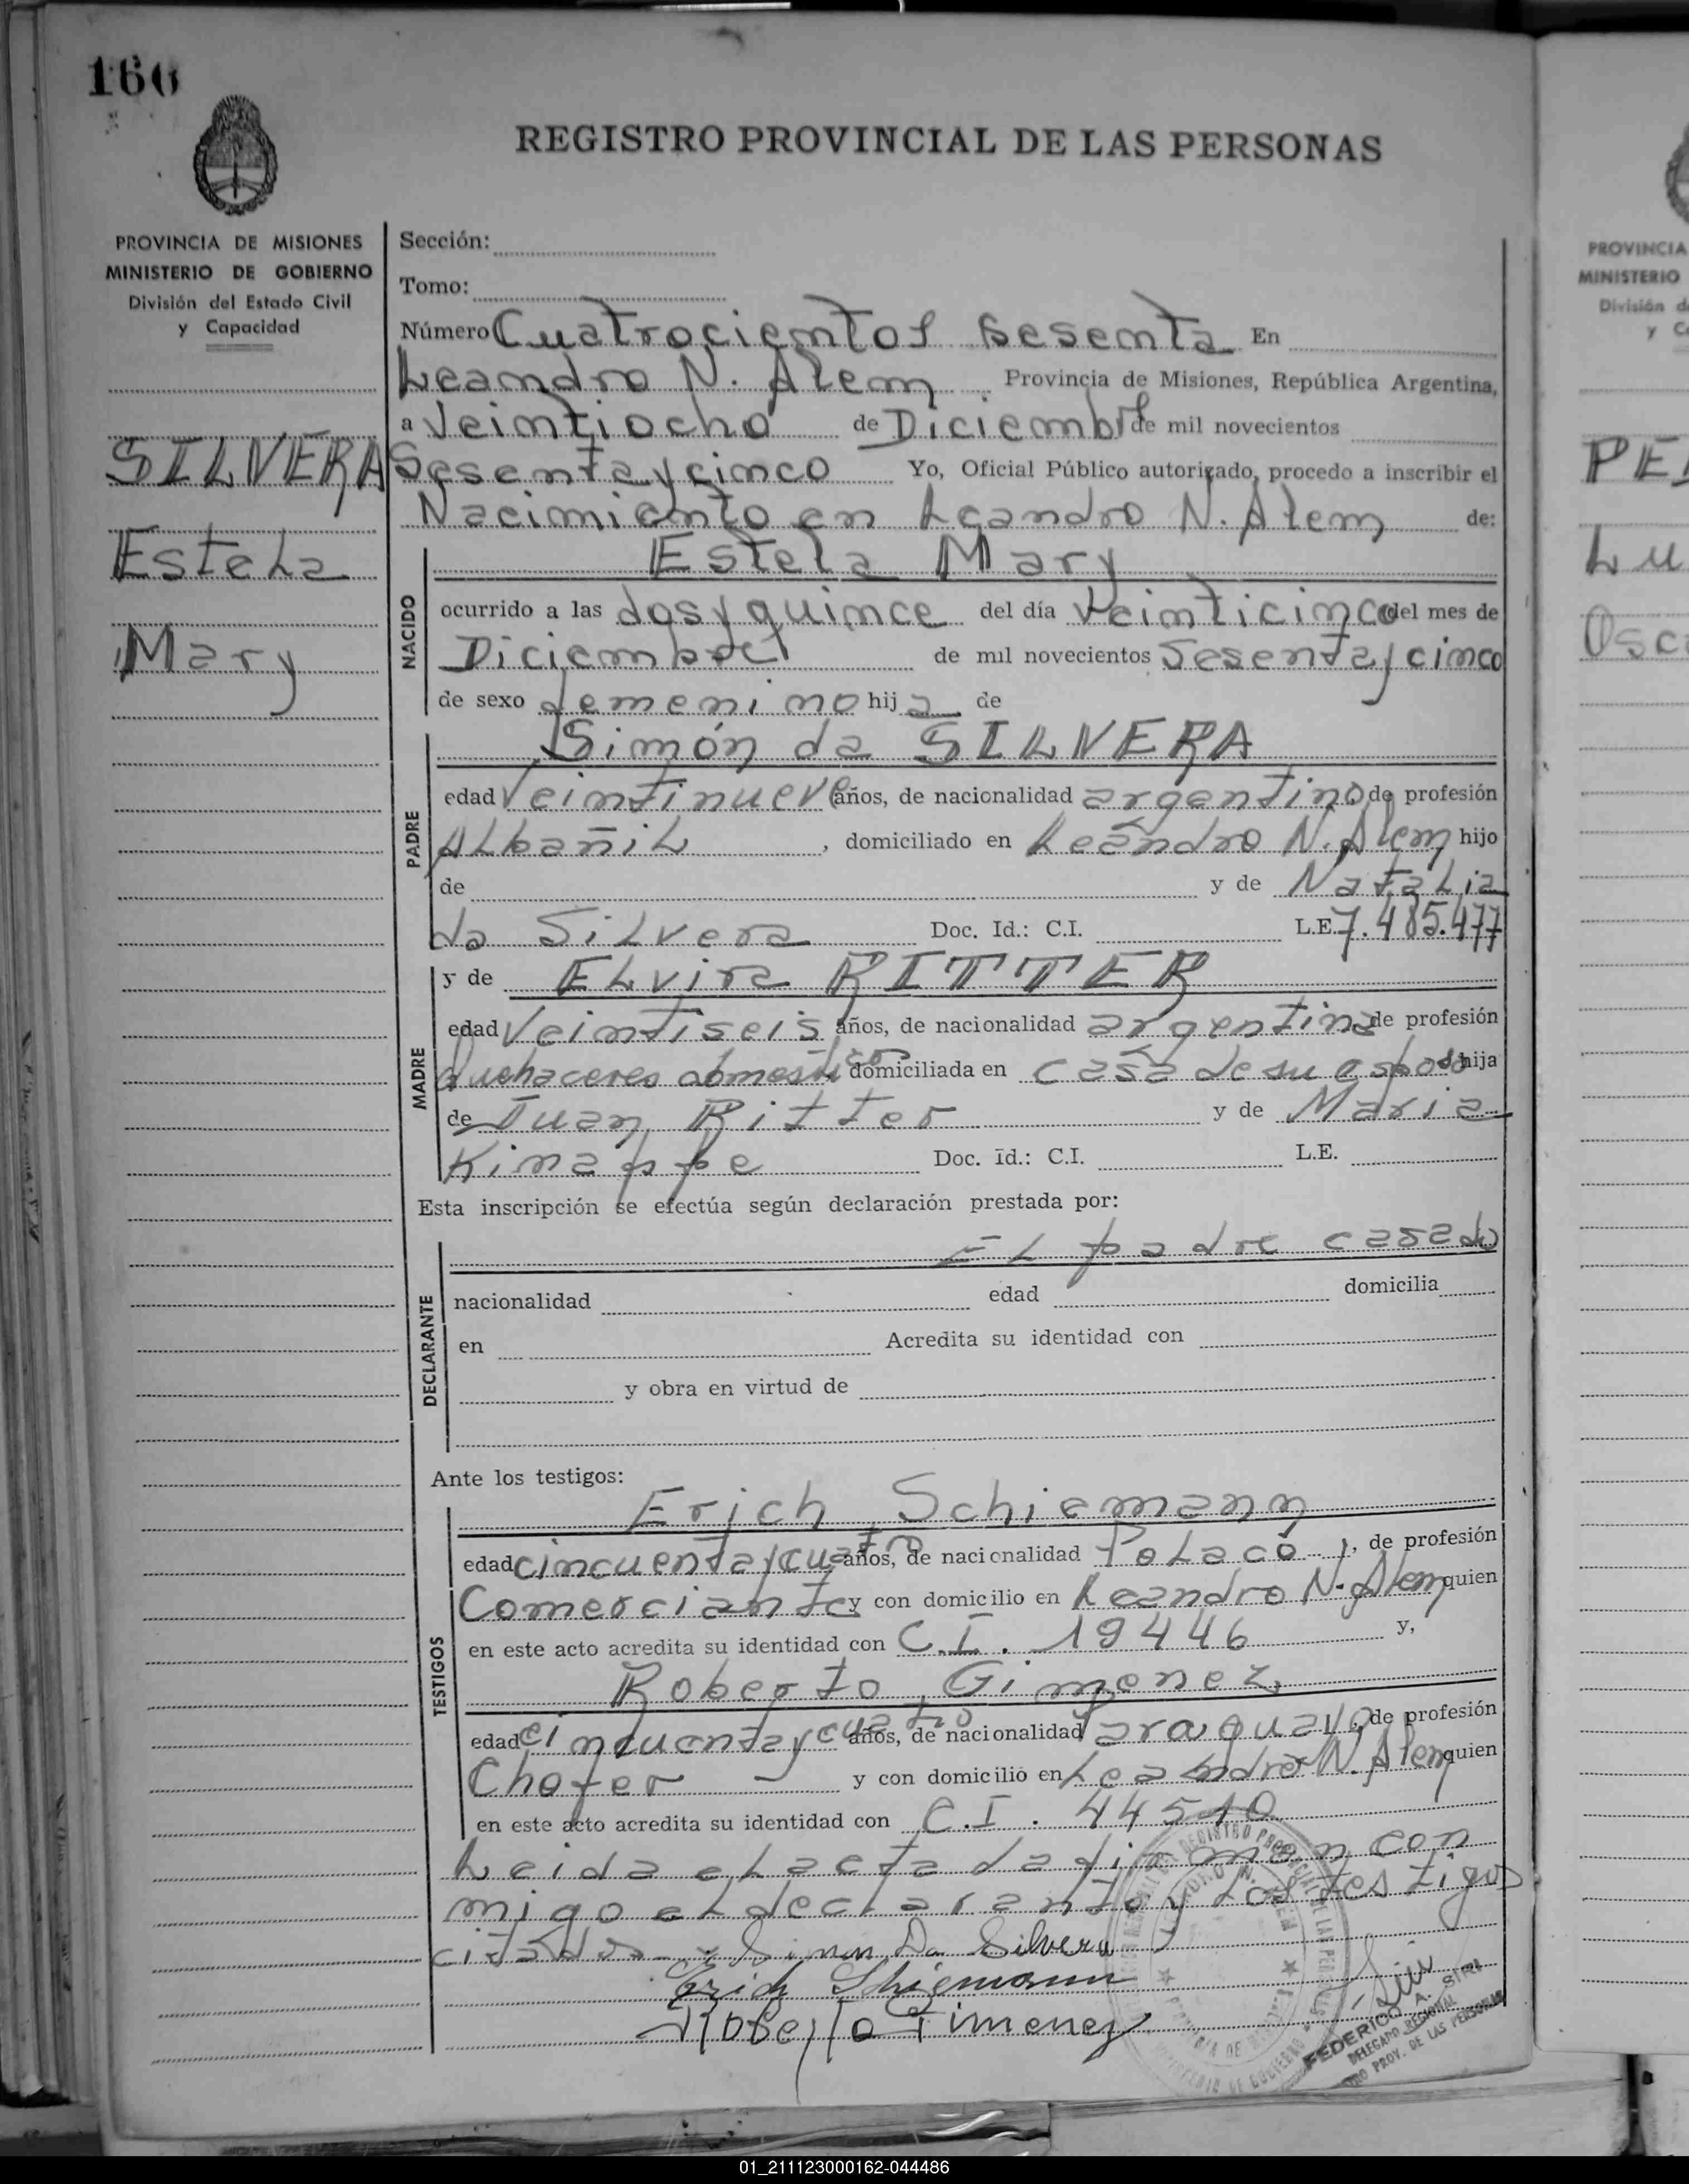 160
REGISTRO PROVINCIAL DE LAS PERSONAS
PROVINCIA DE MISIONES
MINISTERIO DE GOBIERNO
División del Estado Civil
y Capacidad
SILVERA
Estela
Mary
Sección:
Tomo:
Número Cuatrocientos sesenta En
Leandro N. Alem Provincia de Misiones, República Argentina,
a Veintiocho de Diciembre de mil novecientos
Sesenta y cinco Yo, Oficial Público autorizado, procedo a inscribir el
Nacimiento en Leandro N. Alem de:
NACIDO
Estela Mary
ocurrido a las dos y quince del día Veinticinco del mes de
Diciembre de mil novecientos Sesenta y cinco
de sexo femenino hija de
PADRE
Simón da SILVERA
edad Veintinueve años, de nacionalidad argentino, de profesión
Albañil, domiciliado en Leandro N. Alem hijo
de y de Natalia
da Silvera Doc. Id.: C.I. L.E. 7.485.477
MADRE
y de Elvira RITTER
edad Veintiseis años, de nacionalidad argentina de profesión
Quehaceres domesticos domiciliada en casa de su esposo hija
de Juan Ritter y de Maria
Kinappe Doc. Id.: C.I. L.E.
Esta inscripción se efectúa según declaración prestada por:
DECLARANTE
El padre casado
nacionalidad edad domicilia
en Acredita su identidad con
y obra en virtud de
Ante los testigos:
TESTIGOS
Erich Schiemann
edad cincuenta y cuatro años, de nacionalidad Polaco, de profesión
Comerciante y con domicilio en Leandro N. Alem quien
en este acto acredita su identidad con C.I. 19446 y,
Roberto Gimenez
edad cincuenta y cuatro años, de nacionalidad Paraguayo, de profesión
Chofer y con domicilio en Leandro N. Alem quien
en este acto acredita su identidad con C.I. 44510
Leida el acta la firman con
migo el declarante y los testigos
citados. Simon Da Silvera
Erich Schiemann
Roberto Gimenez
FEDERICO A. SIRI
DELEGADO REGIONAL
PROV. DE LAS PERSONAS
PROVINCIA
MINISTERIO
División d
y C
PE
Lu
Osc
01_211123000162-044486